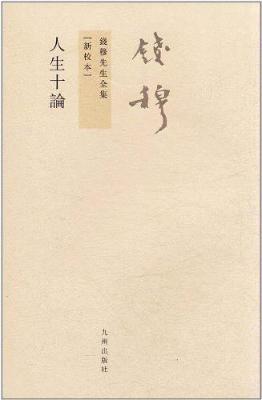 錢穆
錢穆先生全集
[新校本]
人生十論
九州出版社